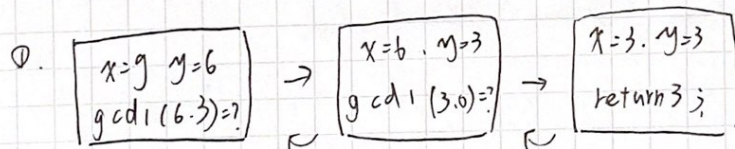 ①.
x=9 y=6
gcd1(6.3)=?
→
x=6. y=3
gcd1(3.0)=?
→
x=3. y=3
return 3;